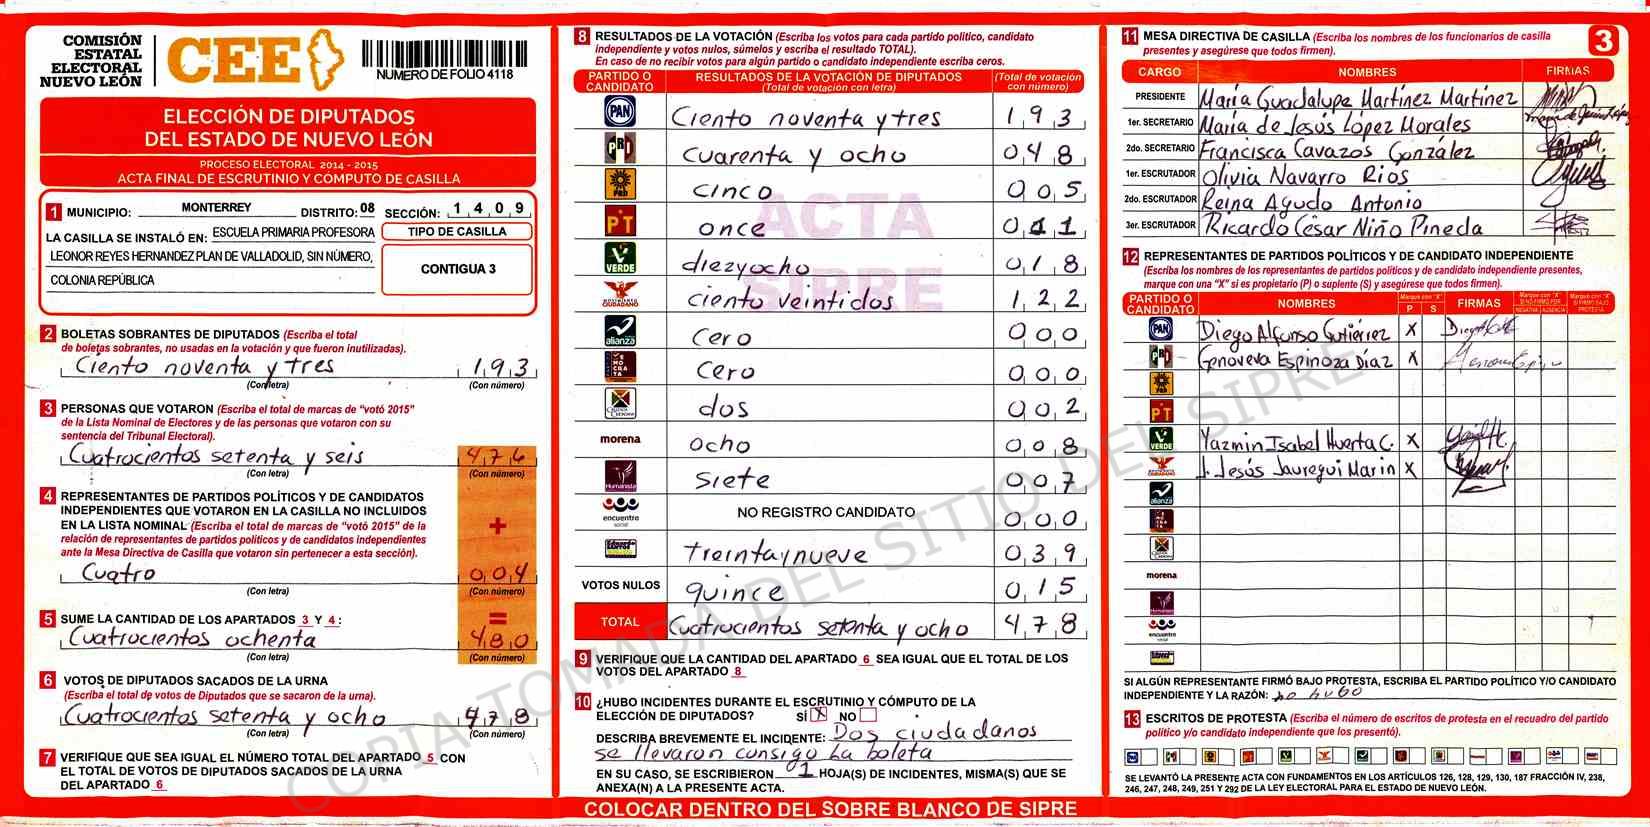 COMISIÓN
ESTATAL
ELECTORAL
NUEVO LEÓN
CEE
NUMERO DE FOLIO 4118
ELECCIÓN DE DIPUTADOS
DEL ESTADO DE NUEVO LEÓN
PROCESO ELECTORAL 2014 - 2015
ACTA FINAL DE ESCRUTINIO Y CÓMPUTO DE CASILLA
1 MUNICIPIO: MONTERREY DISTRITO: 08 SECCIÓN: 1 4 0 9
LA CASILLA SE INSTALÓ EN: ESCUELA PRIMARIA PROFESORA
LEONOR REYES HERNANDEZ PLAN DE VALLADOLID, SIN NÚMERO,
COLONIA REPÚBLICA
TIPO DE CASILLA
CONTIGUA 3
2 BOLETAS SOBRANTES DE DIPUTADOS (Escriba el total
de boletas sobrantes, no usadas en la votación y que fueron inutilizadas).
Ciento noventa y tres 1 9 3
(Con letra) (Con número)
3 PERSONAS QUE VOTARON (Escriba el total de marcas de "votó 2015"
de la Lista Nominal de Electores y de las personas que votaron con su
sentencia del Tribunal Electoral).
Cuatrocientos setenta y seis 4 7 6
(Con letra) (Con número)
4 REPRESENTANTES DE PARTIDOS POLÍTICOS Y DE CANDIDATOS
INDEPENDIENTES QUE VOTARON EN LA CASILLA NO INCLUIDOS
EN LA LISTA NOMINAL (Escriba el total de marcas de "votó 2015" de la
relación de representantes de partidos políticos y de candidatos independientes
ante la Mesa Directiva de Casilla que votaron sin pertenecer a esta sección).
+
Cuatro 0 0 4
(Con letra) (Con número)
5 SUME LA CANTIDAD DE LOS APARTADOS 3 Y 4 : =
Cuatrocientos ochenta 4 8 0
(Con letra) (Con número)
6 VOTOS DE DIPUTADOS SACADOS DE LA URNA
(Escriba el total de votos de Diputados que se sacaron de la urna).
Cuatrocientos setenta y ocho 4 7 8
(Con letra) (Con número)
7 VERIFIQUE QUE SEA IGUAL EL NÚMERO TOTAL DEL APARTADO 5 CON
EL TOTAL DE VOTOS DE DIPUTADOS SACADOS DE LA URNA
DEL APARTADO 6
8 RESULTADOS DE LA VOTACIÓN (Escriba los votos para cada partido político, candidato
independiente y votos nulos, súmelos y escriba el resultado TOTAL).
En caso de no recibir votos para algún partido o candidato independiente escriba ceros.
PARTIDO O CANDIDATO RESULTADOS DE LA VOTACIÓN DE DIPUTADOS (Total de votación con letra) (Total de votación con número)
PAN Ciento noventa y tres 1 9 3
PRI Cuarenta y ocho 0 4 8
PRD cinco 0 0 5
PT once 0 1 1
VERDE diez y ocho 0 1 8
MOVIMIENTO CIUDADANO ciento veintidos 1 2 2
alianza cero 0 0 0
DEMOCRATA cero 0 0 0
dos 0 0 2
morena ocho 0 0 8
Humanista siete 0 0 7
encuentro social NO REGISTRO CANDIDATO 0 0 0
treinta y nueve 0 3 9
VOTOS NULOS quince 0 1 5
TOTAL Cuatrocientos setenta y ocho 4 7 8
ACTA
SIPRE
9 VERIFIQUE QUE LA CANTIDAD DEL APARTADO 6 SEA IGUAL QUE EL TOTAL DE LOS
VOTOS DEL APARTADO 8
10 ¿HUBO INCIDENTES DURANTE EL ESCRUTINIO Y CÓMPUTO DE LA
ELECCIÓN DE DIPUTADOS? SÍ X NO
DESCRIBA BREVEMENTE EL INCIDENTE: Dos ciudadanos
se llevaron consigo la boleta
EN SU CASO, SE ESCRIBIERON 1 HOJA(S) DE INCIDENTES, MISMA(S) QUE SE
ANEXA(N) A LA PRESENTE ACTA.
COLOCAR DENTRO DEL SOBRE BLANCO DE SIPRE
11 MESA DIRECTIVA DE CASILLA (Escriba los nombres de los funcionarios de casilla
presentes y asegúrese que todos firmen).
3
CARGO NOMBRES FIRMAS
PRESIDENTE María Guadalupe Martínez Martínez
1er. SECRETARIO María de Jesús López Morales
2do. SECRETARIO Francisca Cavazos González
1er. ESCRUTADOR Olivia Navarro Rios
2do. ESCRUTADOR Reina Agudo Antonio
3er. ESCRUTADOR Ricardo César Niño Pineda
12 REPRESENTANTES DE PARTIDOS POLÍTICOS Y DE CANDIDATO INDEPENDIENTE
(Escriba los nombres de los representantes de partidos políticos y de candidato independiente presentes,
marque con una "X" si es propietario (P) o suplente (S) y asegúrese que todos firmen).
PARTIDO O CANDIDATO NOMBRES Marque con "X" P S FIRMAS
PAN Diego Alfonso Gutiérrez X
PRI Genoveva Espinoza Díaz X
PRD
PT
VERDE Yazmin Isabel Huerta C. X
J. Jesús Jauregui Marin X
alianza
morena
Humanista
encuentro social
SI ALGÚN REPRESENTANTE FIRMÓ BAJO PROTESTA, ESCRIBA EL PARTIDO POLÍTICO Y/O CANDIDATO
INDEPENDIENTE Y LA RAZÓN: no hubo
13 ESCRITOS DE PROTESTA (Escriba el número de escritos de protesta en el recuadro del partido
político y/o candidato independiente que los presentó).
SE LEVANTÓ LA PRESENTE ACTA CON FUNDAMENTOS EN LOS ARTÍCULOS 126, 128, 129, 130, 187 FRACCIÓN IV, 238,
246, 247, 248, 249, 251 Y 292 DE LA LEY ELECTORAL PARA EL ESTADO DE NUEVO LEÓN.
COPIA TOMADA DEL SITIO DEL SIPRE